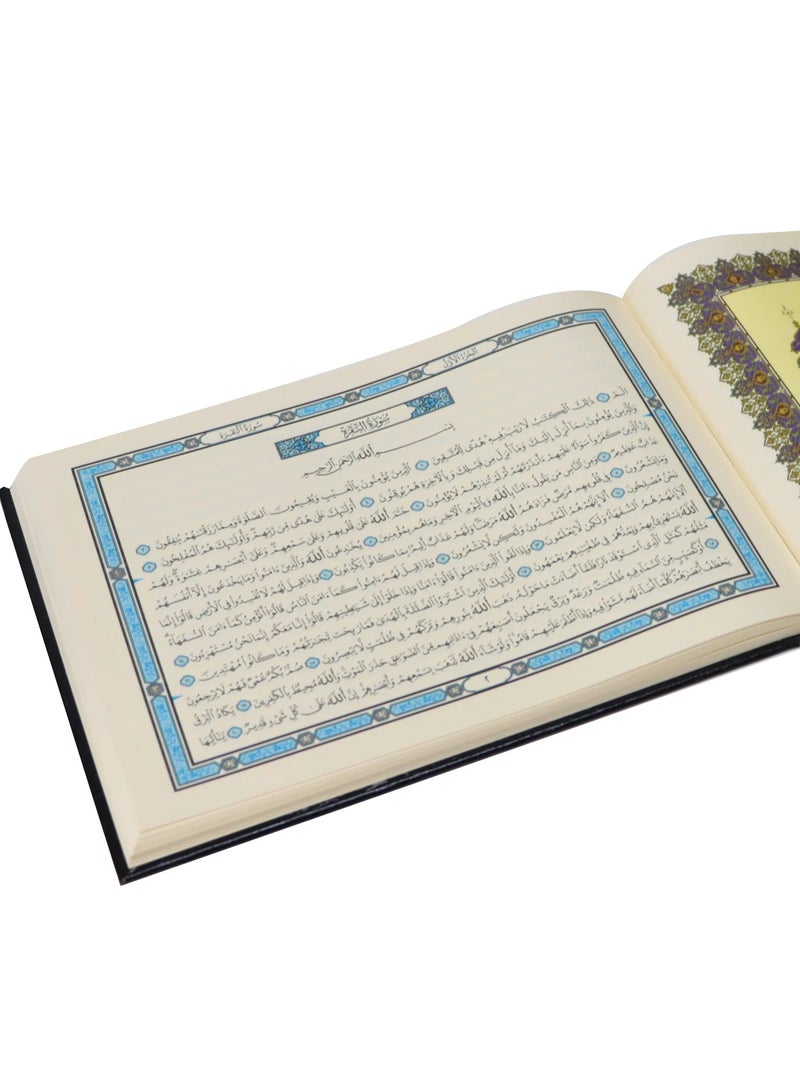 الجزء الأول
سورة البقرة
سُورَةُ البَقَرَةِ
بِسْمِ اللَّهِ الرَّحْمَٰنِ الرَّحِيمِ
الٓمٓ ١ ذَٰلِكَ الْكِتَٰبُ لَا رَيْبَ فِيهِ هُدًى لِّلْمُتَّقِينَ ٢ الَّذِينَ يُؤْمِنُونَ بِالْغَيْبِ وَيُقِيمُونَ الصَّلَوٰةَ وَمِمَّا رَزَقْنَٰهُمْ يُنفِقُونَ ٣
وَالَّذِينَ يُؤْمِنُونَ بِمَا أُنزِلَ إِلَيْكَ وَمَا أُنزِلَ مِن قَبْلِكَ وَبِالْآخِرَةِ هُمْ يُوقِنُونَ ٤ أُولَٰئِكَ عَلَىٰ هُدًى مِّن رَّبِّهِمْ وَأُولَٰئِكَ هُمُ الْمُفْلِحُونَ ٥
إِنَّ الَّذِينَ كَفَرُوا سَوَاءٌ عَلَيْهِمْ ءَأَنذَرْتَهُمْ أَمْ لَمْ تُنذِرْهُمْ لَا يُؤْمِنُونَ ٦ خَتَمَ اللَّهُ عَلَىٰ قُلُوبِهِمْ وَعَلَىٰ سَمْعِهِمْ وَعَلَىٰ أَبْصَٰرِهِمْ غِشَٰوَةٌ وَلَهُمْ
عَذَابٌ عَظِيمٌ ٧ وَمِنَ النَّاسِ مَن يَقُولُ ءَامَنَّا بِاللَّهِ وَبِالْيَوْمِ الْآخِرِ وَمَا هُم بِمُؤْمِنِينَ ٨ يُخَٰدِعُونَ اللَّهَ وَالَّذِينَ ءَامَنُوا وَمَا يَخْدَعُونَ إِلَّا أَنفُسَهُمْ
وَمَا يَشْعُرُونَ ٩ فِي قُلُوبِهِم مَّرَضٌ فَزَادَهُمُ اللَّهُ مَرَضًا وَلَهُمْ عَذَابٌ أَلِيمٌ بِمَا كَانُوا يَكْذِبُونَ ١٠ وَإِذَا قِيلَ لَهُمْ لَا تُفْسِدُوا فِي الْأَرْضِ قَالُوا إِنَّمَا
نَحْنُ مُصْلِحُونَ ١١ أَلَا إِنَّهُمْ هُمُ الْمُفْسِدُونَ وَلَٰكِن لَّا يَشْعُرُونَ ١٢ وَإِذَا قِيلَ لَهُمْ ءَامِنُوا كَمَا ءَامَنَ النَّاسُ قَالُوا أَنُؤْمِنُ كَمَا ءَامَنَ السُّفَهَاءُ
أَلَا إِنَّهُمْ هُمُ السُّفَهَاءُ وَلَٰكِن لَّا يَعْلَمُونَ ١٣ وَإِذَا لَقُوا الَّذِينَ ءَامَنُوا قَالُوا ءَامَنَّا وَإِذَا خَلَوْا إِلَىٰ شَيَٰطِينِهِمْ قَالُوا إِنَّا مَعَكُمْ إِنَّمَا نَحْنُ مُسْتَهْزِءُونَ ١٤
اللَّهُ يَسْتَهْزِئُ بِهِمْ وَيَمُدُّهُمْ فِي طُغْيَٰنِهِمْ يَعْمَهُونَ ١٥ أُولَٰئِكَ الَّذِينَ اشْتَرَوُا الضَّلَٰلَةَ بِالْهُدَىٰ فَمَا رَبِحَت تِّجَٰرَتُهُمْ وَمَا كَانُوا مُهْتَدِينَ ١٦
مَثَلُهُمْ كَمَثَلِ الَّذِي اسْتَوْقَدَ نَارًا فَلَمَّا أَضَاءَتْ مَا حَوْلَهُ ذَهَبَ اللَّهُ بِنُورِهِمْ وَتَرَكَهُمْ فِي ظُلُمَٰتٍ لَّا يُبْصِرُونَ ١٧ صُمٌّ بُكْمٌ عُمْيٌ فَهُمْ لَا يَرْجِعُونَ ١٨
أَوْ كَصَيِّبٍ مِّنَ السَّمَاءِ فِيهِ ظُلُمَٰتٌ وَرَعْدٌ وَبَرْقٌ يَجْعَلُونَ أَصَٰبِعَهُمْ فِي ءَاذَانِهِم مِّنَ الصَّوَٰعِقِ حَذَرَ الْمَوْتِ وَاللَّهُ مُحِيطٌ بِالْكَٰفِرِينَ ١٩ يَكَادُ الْبَرْقُ
يَخْطَفُ أَبْصَٰرَهُمْ كُلَّمَا أَضَاءَ لَهُم مَّشَوْا فِيهِ وَإِذَا أَظْلَمَ عَلَيْهِمْ قَامُوا وَلَوْ شَاءَ اللَّهُ لَذَهَبَ بِسَمْعِهِمْ وَأَبْصَٰرِهِمْ إِنَّ اللَّهَ عَلَىٰ كُلِّ شَيْءٍ قَدِيرٌ ٢٠ يَٰأَيُّهَا
٢